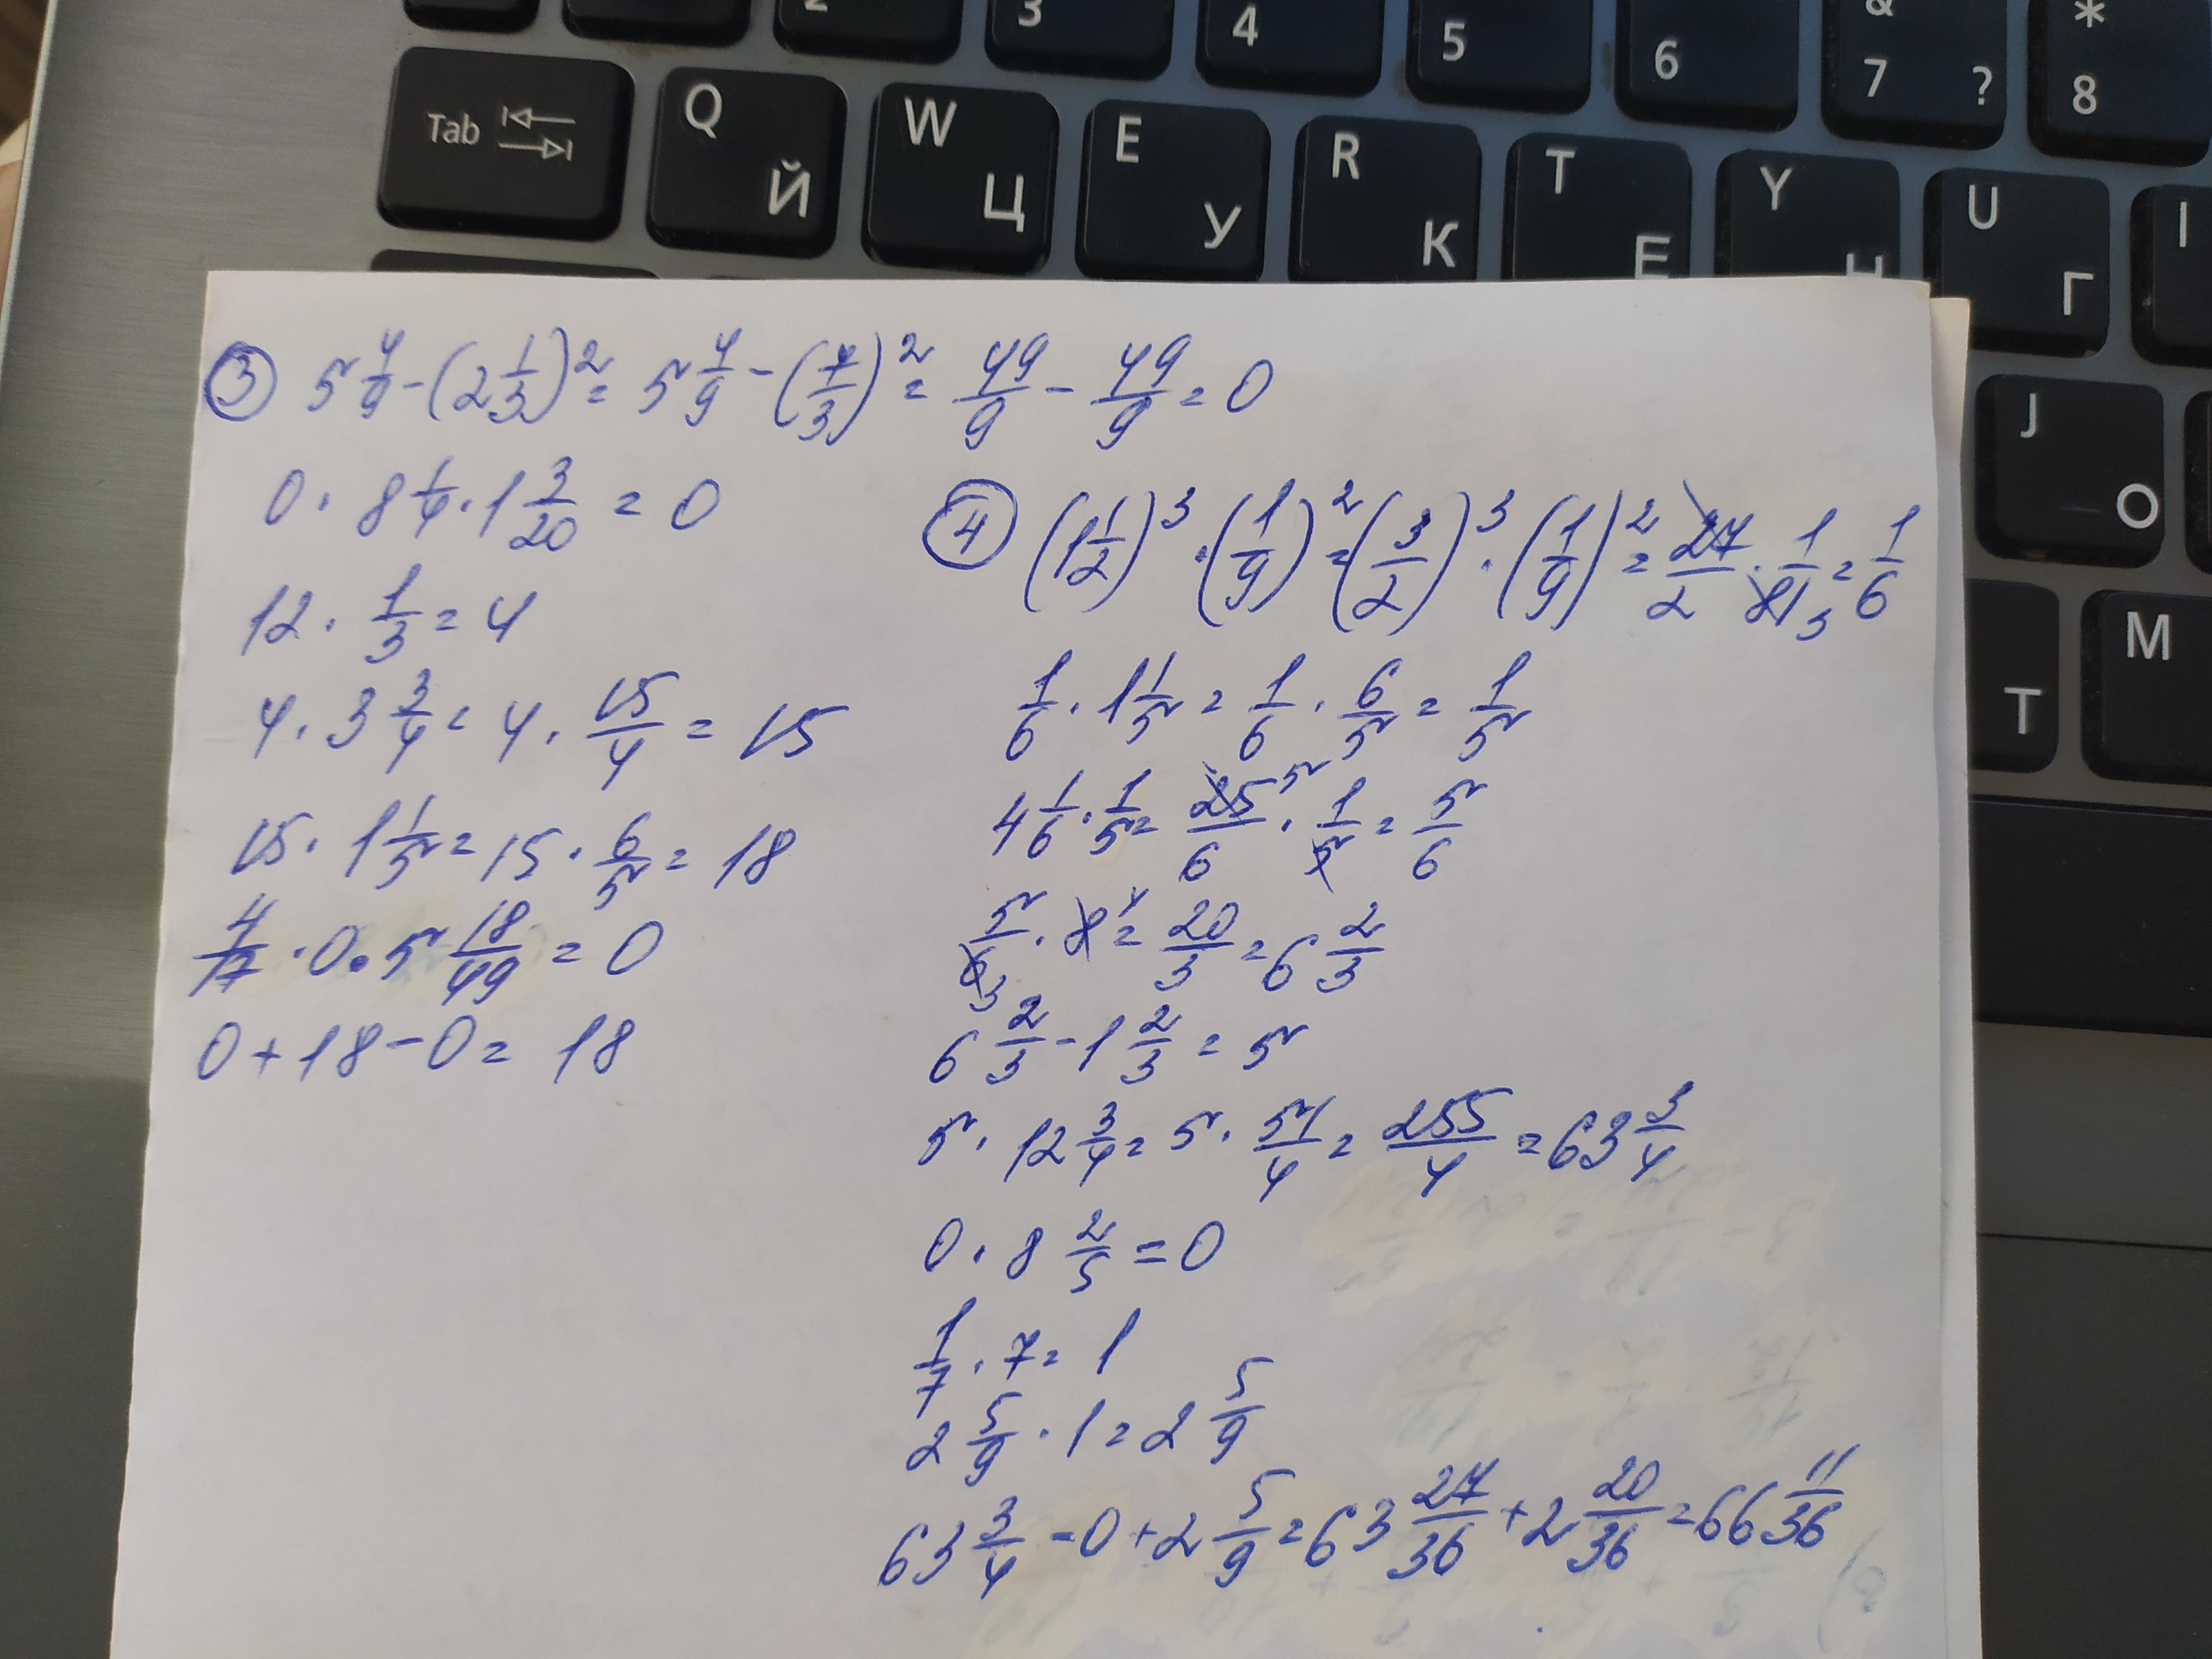 2 3 4 5 6 & 7 ? * 8
Tab Q Й W Ц E У R К T Е Y Н U Г I
J О
Т M
③ 5 4/9 - (2 1/3)² = 5 4/9 - (7/3)² = 49/9 - 49/9 = 0
0 · 8 1/4 · 1 3/20 = 0
12 · 1/3 = 4
4 · 3 3/4 = 4 · 15/4 = 15
15 · 1 1/5 = 15 · 6/5 = 18
· 0 · 5 18/49 = 0
0 + 18 - 0 = 18
④ (1 1/2)³ · (1/9)² = (3/2)³ · (1/9)² = 27/2 · 1/81 3 = 1/6
1/6 · 1 1/5 = 1/6 · 6/5 = 1/5
4 1/6 · 1/5 = 25 5/6 · 1/5 = 5/6
5/6 3 · 8 4 = 20/3 = 6 2/3
6 2/3 - 1 2/3 = 5
5 · 12 3/4 = 5 · 51/4 = 255/4 = 63 3/4
0 · 8 2/5 = 0
1/7 · 7 = 1
2 5/9 · 1 = 2 5/9
63 3/4 - 0 + 2 5/9 = 63 27/36 + 2 20/36 = 66 11/36